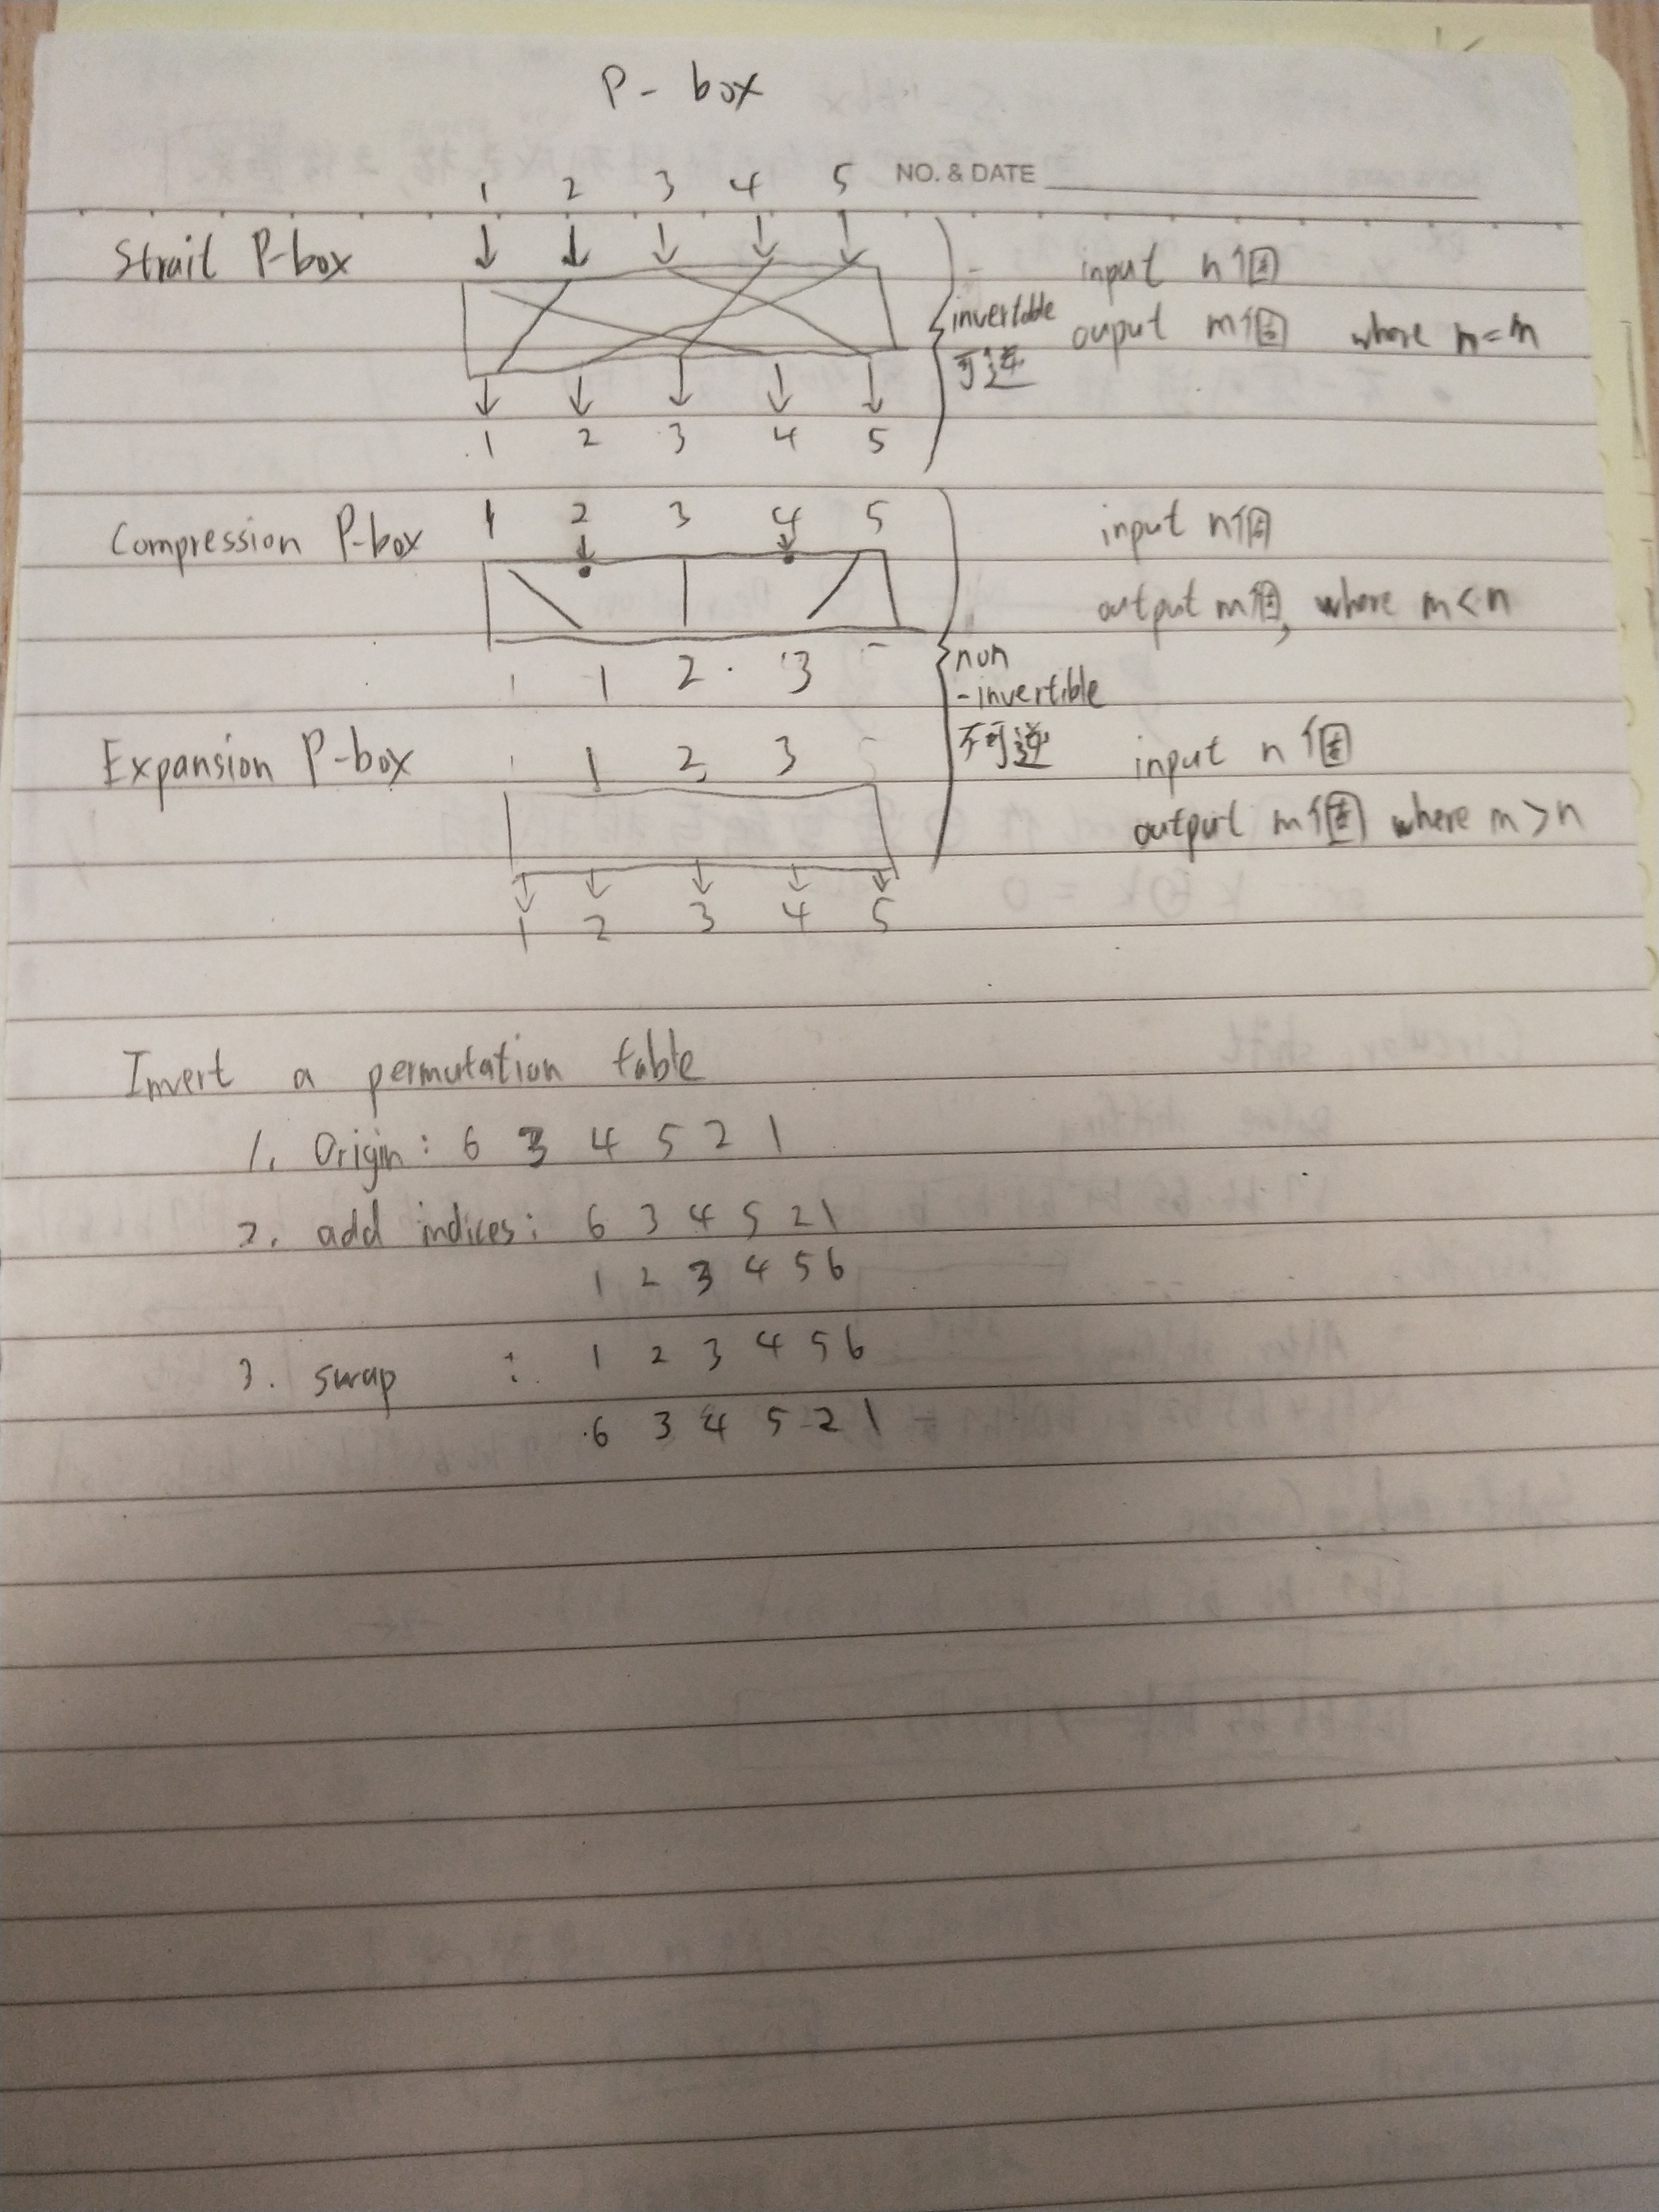 P-box
NO. & DATE
1 2 3 4 5
Strait P-box
input n個
invertable
ouput m個 where n=m
可逆
1 2 3 4 5
Compression P-box
1 2 3 4 5
input n個
output m個, where m<n
1 2 3
non
-invertible
不可逆
Expansion P-box
1 2 3
input n個
output m個 where m>n
1 2 3 4 5
Invert a permutation table
1. Origin: 6 3 4 5 2 1
2. add indices: 6 3 4 5 2 1
1 2 3 4 5 6
3. swap : 1 2 3 4 5 6
6 3 4 5 2 1